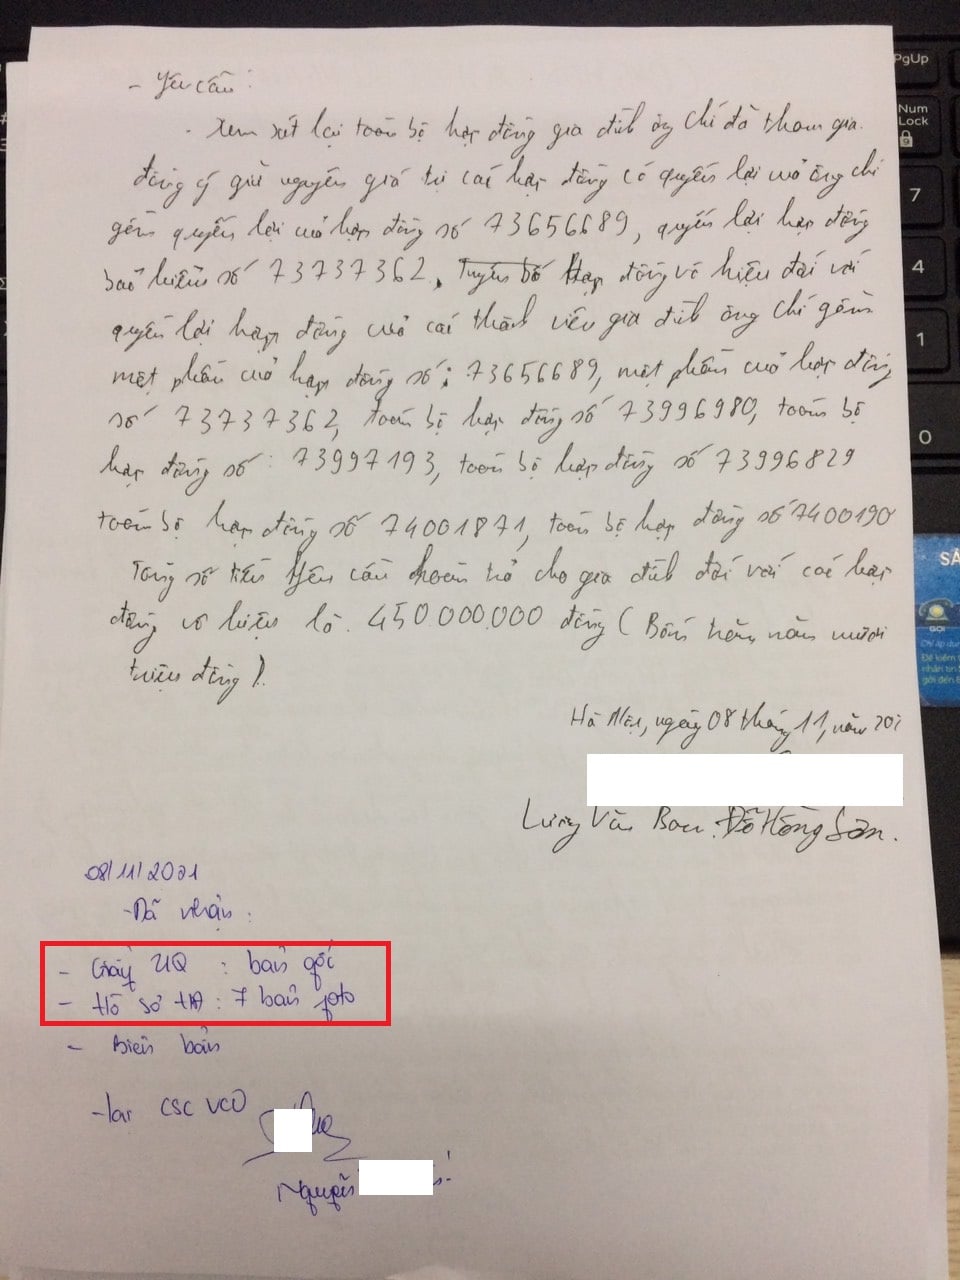 - Yêu cầu:
. Xem xét lại toàn bộ hợp đồng gia đình ông Chí đã tham gia.
đồng ý giữ nguyên giá trị các hợp đồng có quyền lợi của ông Chí
gồm quyền lợi của hợp đồng số 73656689, quyền lợi hợp đồng
bảo hiểm số 73737362. Tuyên bố Hợp đồng vô hiệu đối với
quyền lợi hợp đồng của các thành viên gia đình ông Chí gồm
một phần của hợp đồng số: 73656689, một phần của hợp đồng
số 73737362, toàn bộ hợp đồng số 73996980, toàn bộ
hợp đồng số: 73997193, toàn bộ hợp đồng số 73996829
toàn bộ hợp đồng số 74001871, toàn bộ hợp đồng số 7400190
Tổng số tiền yêu cầu hoàn trả cho gia đình đối với các hợp
đồng vô hiệu là 450.000.000 đồng (Bốn trăm năm mươi
triệu đồng).
Hà Nội, ngày 08 tháng 11, năm 202
Lương Văn Ban. Đỗ Hồng Sơn.
08/11/2021
- Đã nhận:
- Giấy UQ : bản gốc
- Hồ sơ HĐ : 7 bản foto
- Biên bản
- tại CSC VCO
Nguyễn
PgUp
Num
Lock
9
7
4
1
0
SẢ
GỌI
Chỉ áp dụ
Để kiểm t
nhắn tin
gửi đến